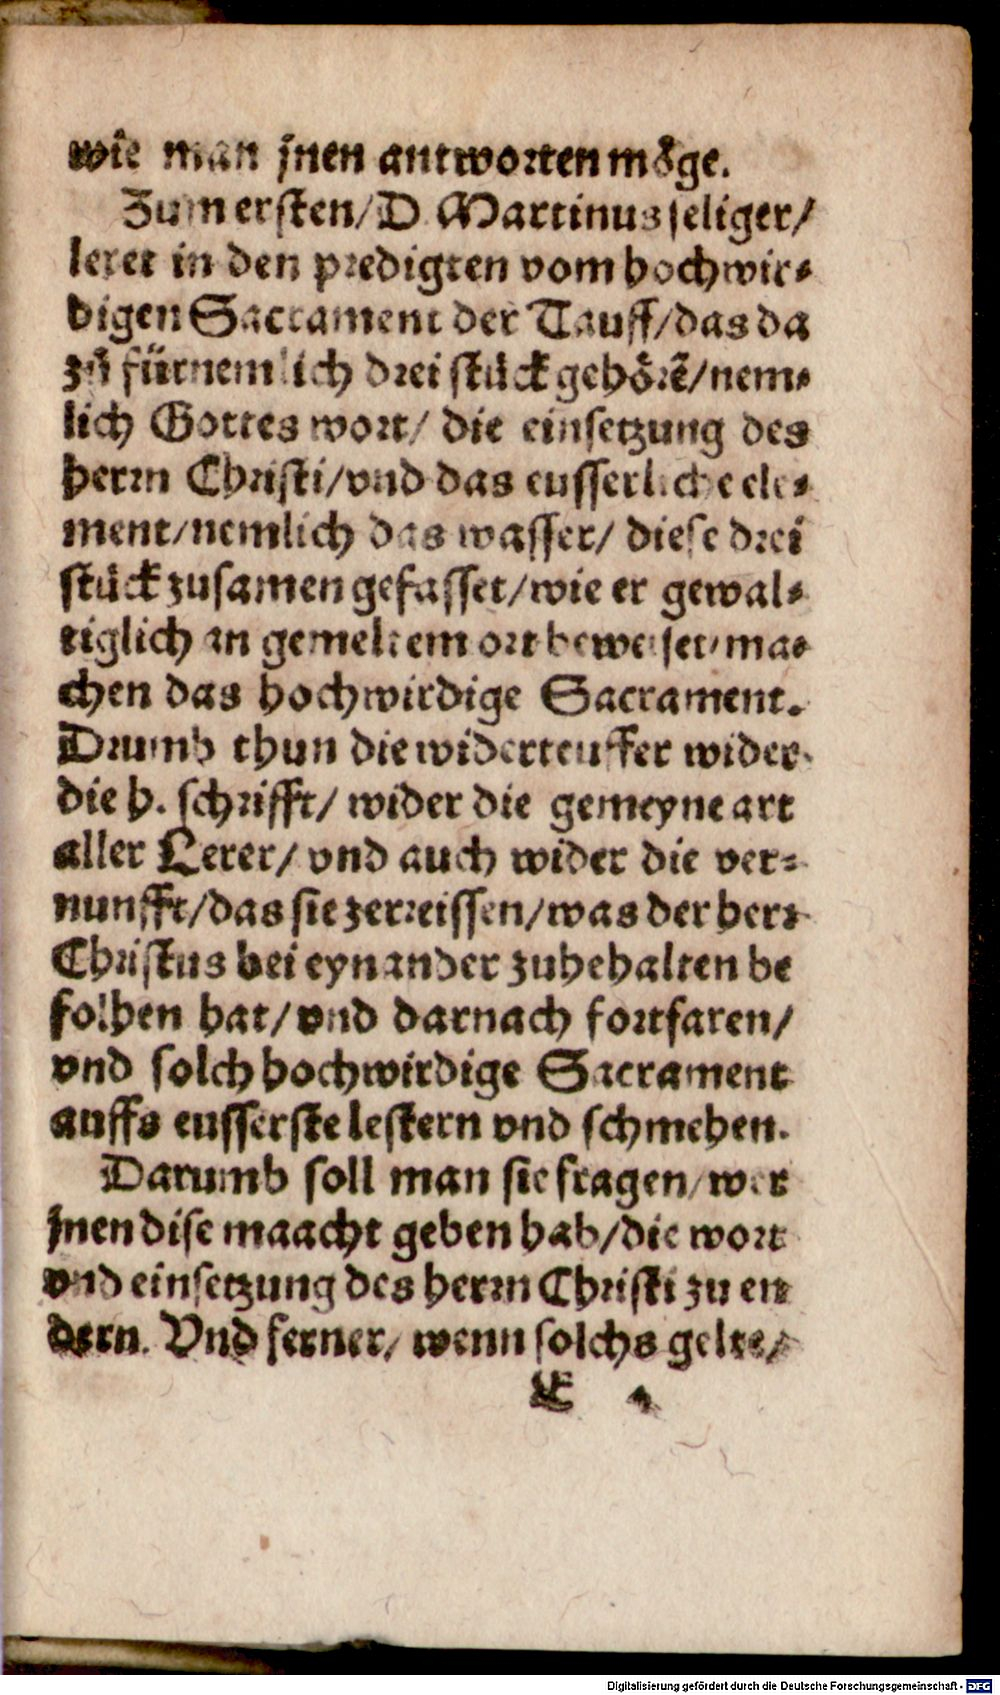 wie man jnen antworten möge.
Zum ersten/ D. Martinus seliger/
leret in den predigten vom hochwir⸗
digen Sacrament der Tauff/ das da
zů fürnemlich drei stück gehörẽ/ nem⸗
lich Gottes wort/ die einsetzung des
herrn Christi/ vnd das eusserliche ele⸗
ment/ nemlich das wasser/ diese drei
stück zusamen gefasset/ wie er gewal⸗
tiglich an gemeltem ort beweiset/ ma⸗
chen das hochwirdige Sacrament.
Drumb thun die widerteuffer wider
die h. schrifft/ wider die gemeyne art
aller Lerer/ vnd auch wider die ver⸗
nunfft/ das sie zerreissen/ was der herr
Christus bei eynander zubehalten be
folhen hat/ vnd darnach fortfaren/
vnd solch hochwirdige Sacrament
auffs eusserste lestern vnd schmehen.
Darumb soll man sie fragen/ wer
jnen dise maacht geben hab/ die wort
vnd einsetzung des herrn Christi zu en
dern. Vnd ferner/ wenn solchs gelte/
Digitalisierung gefördert durch die Deutsche Forschungsgemeinschaft - DFG